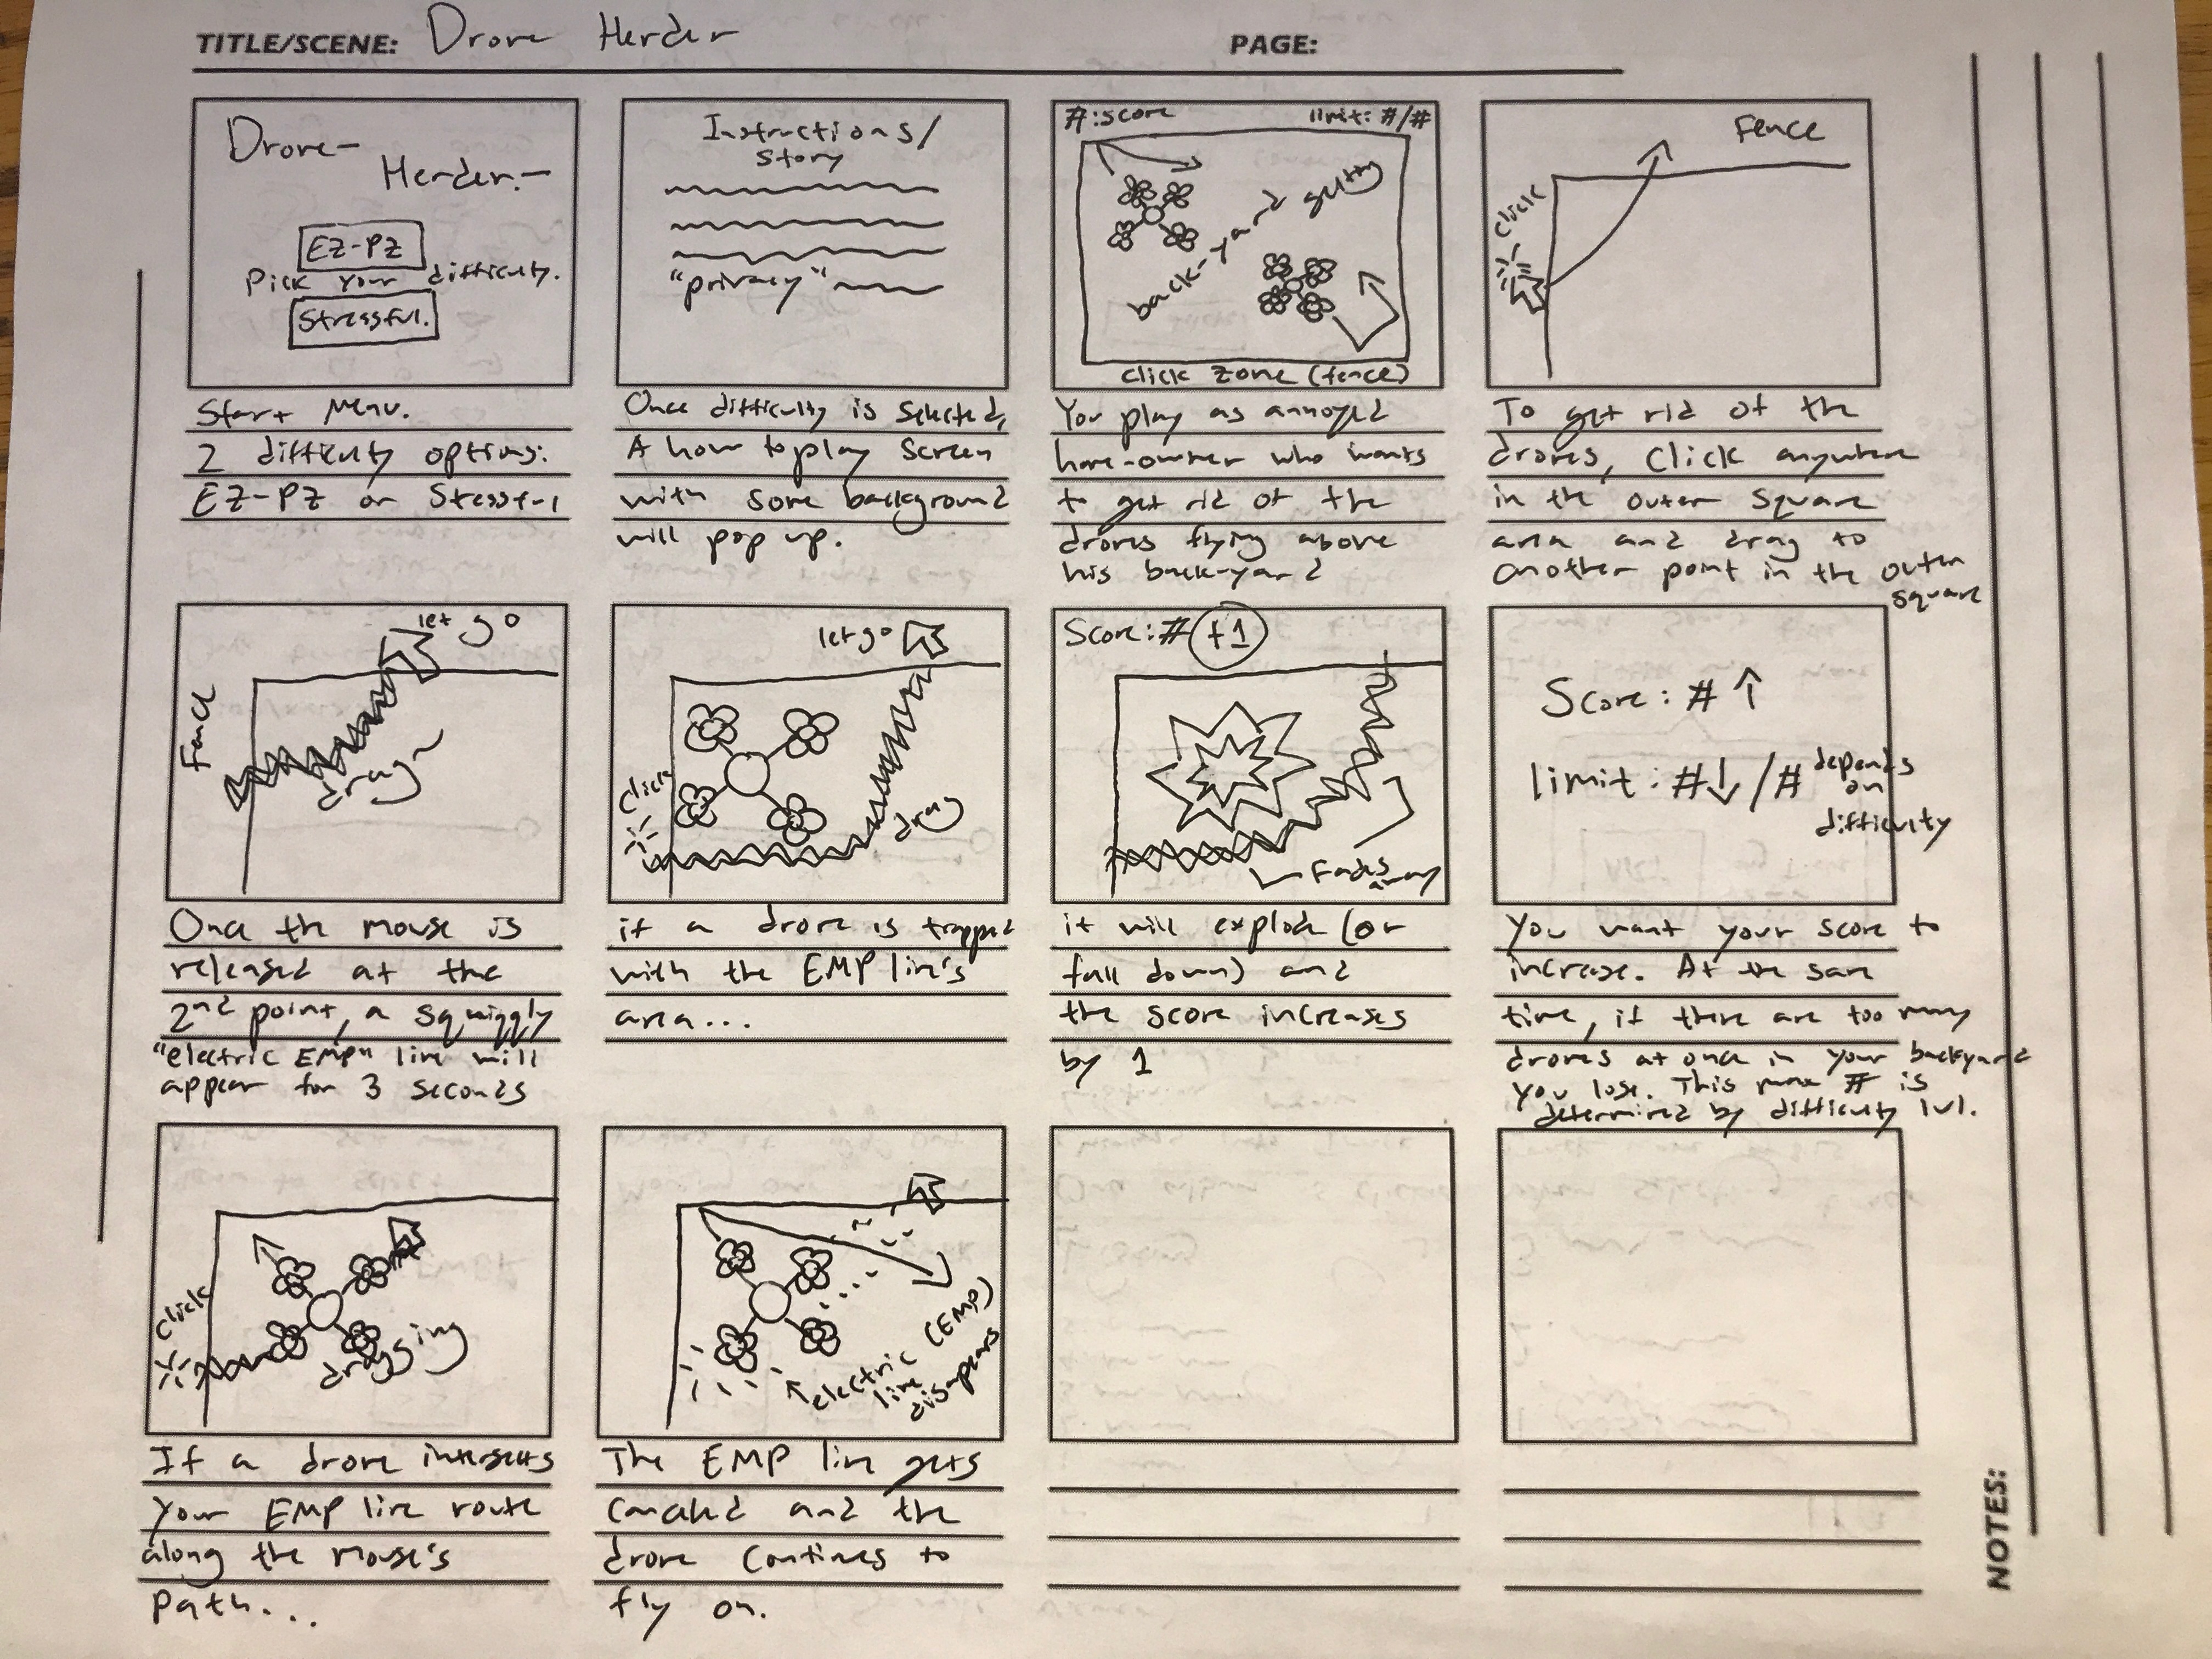 TITLE/SCENE: Drone Herder
PAGE:
Drone-
Herder.-
EZ-PZ
Pick your difficulty.
Stressful.
Start Menu.
2 difficulty options:
EZ-PZ or Stressful
Instructions/
Story
"privacy"
Once difficulty is selected,
A how to play screen
with some background
will pop up.
#:score
limit:#/#
click zone (fence)
You play as annoyed
home-owner who wants
to get rid of the
drones flying above
his backyard
Fence
click
To get rid of the
drones, Click anywhere
in the outer square
area and drag to
another point in the outer
square
let go
drag
Once the mouse is
released at the
2nd point, a squiggly
"electric EMP" line will
appear for 3 seconds
let go
click
drag
if a drone is trapped
with the EMP line's
area...
Score:# +1
Fades
away
it will explode (or
fall down) and
the score increases
by 1
Score:#↑
limit:#↓/# depends
on
difficulty
You want your score to
increase. At the same
time, if there are too many
drones at once in your backyard
you lose. This max # is
determined by difficulty lvl.
click
dragging
If a drone intersects
your EMP line route
along the mouse's
path...
(EMP)
electric line disappears
The EMP line gets
canceled and the
drone continues to
fly on.
NOTES: